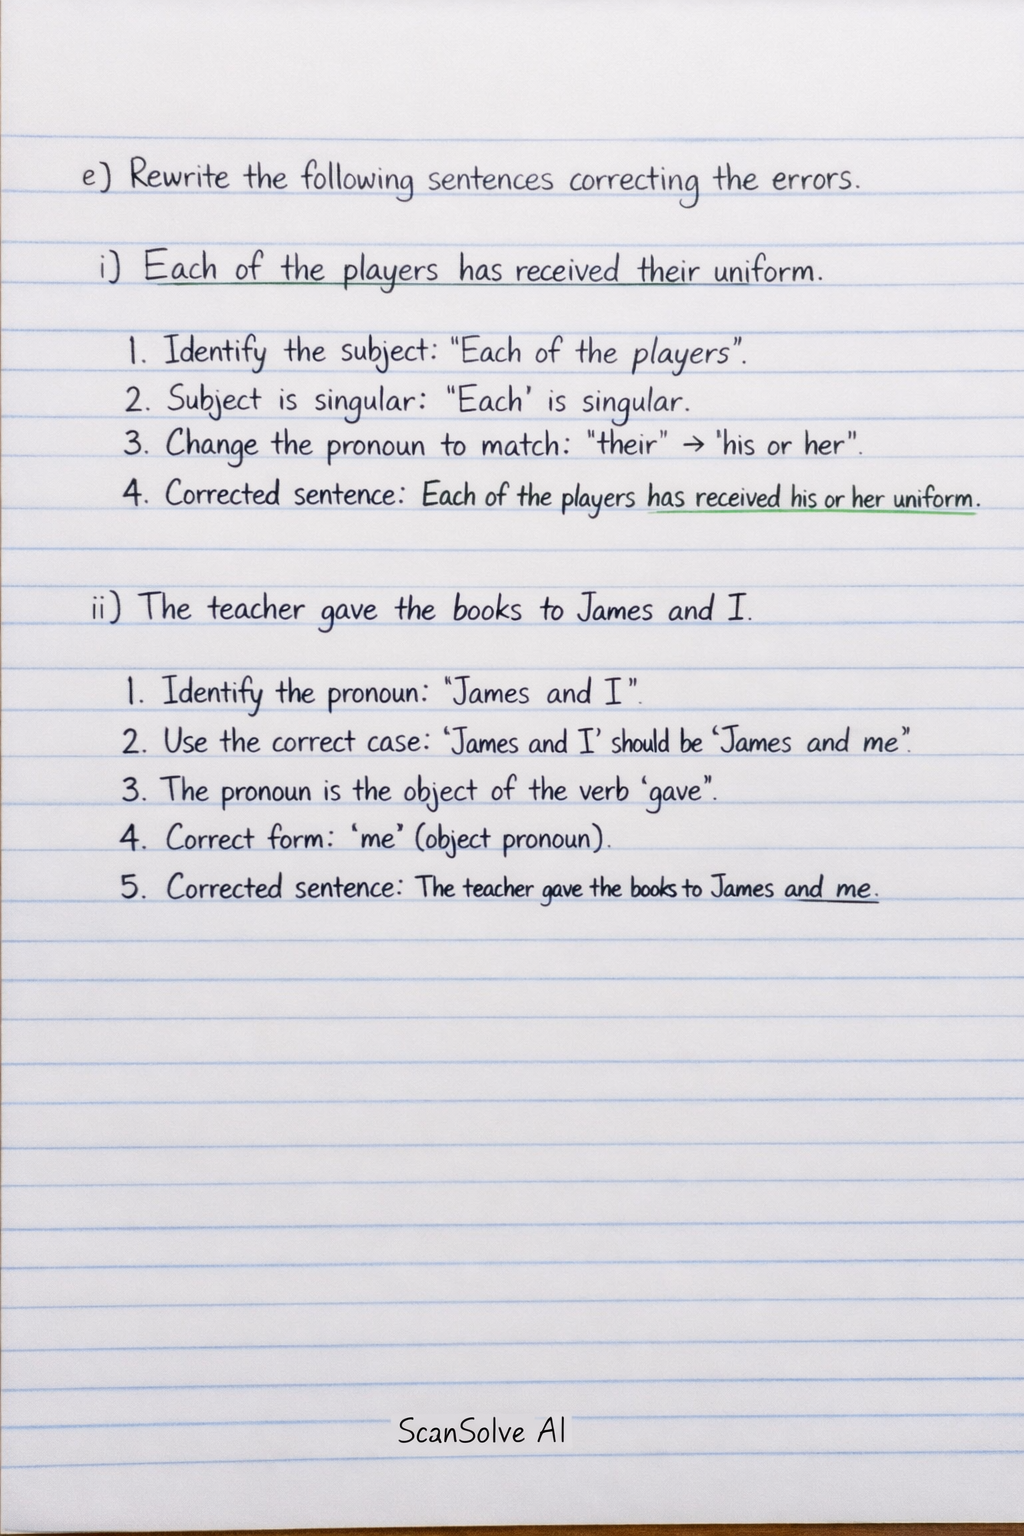 e) Rewrite the following sentences correcting the errors.
i) Each of the players has received their uniform.
1. Identify the subject: "Each of the players".
2. Subject is singular: "Each' is singular.
3. Change the pronoun to match: "their" → 'his or her".
4. Corrected sentence: Each of the players has received his or her uniform.
ii) The teacher gave the books to James and I.
1. Identify the pronoun: "James and I".
2. Use the correct case: 'James and I' should be 'James and me".
3. The pronoun is the object of the verb 'gave".
4. Correct form: 'me' (object pronoun).
5. Corrected sentence: The teacher gave the books to James and me.
ScanSolve AI